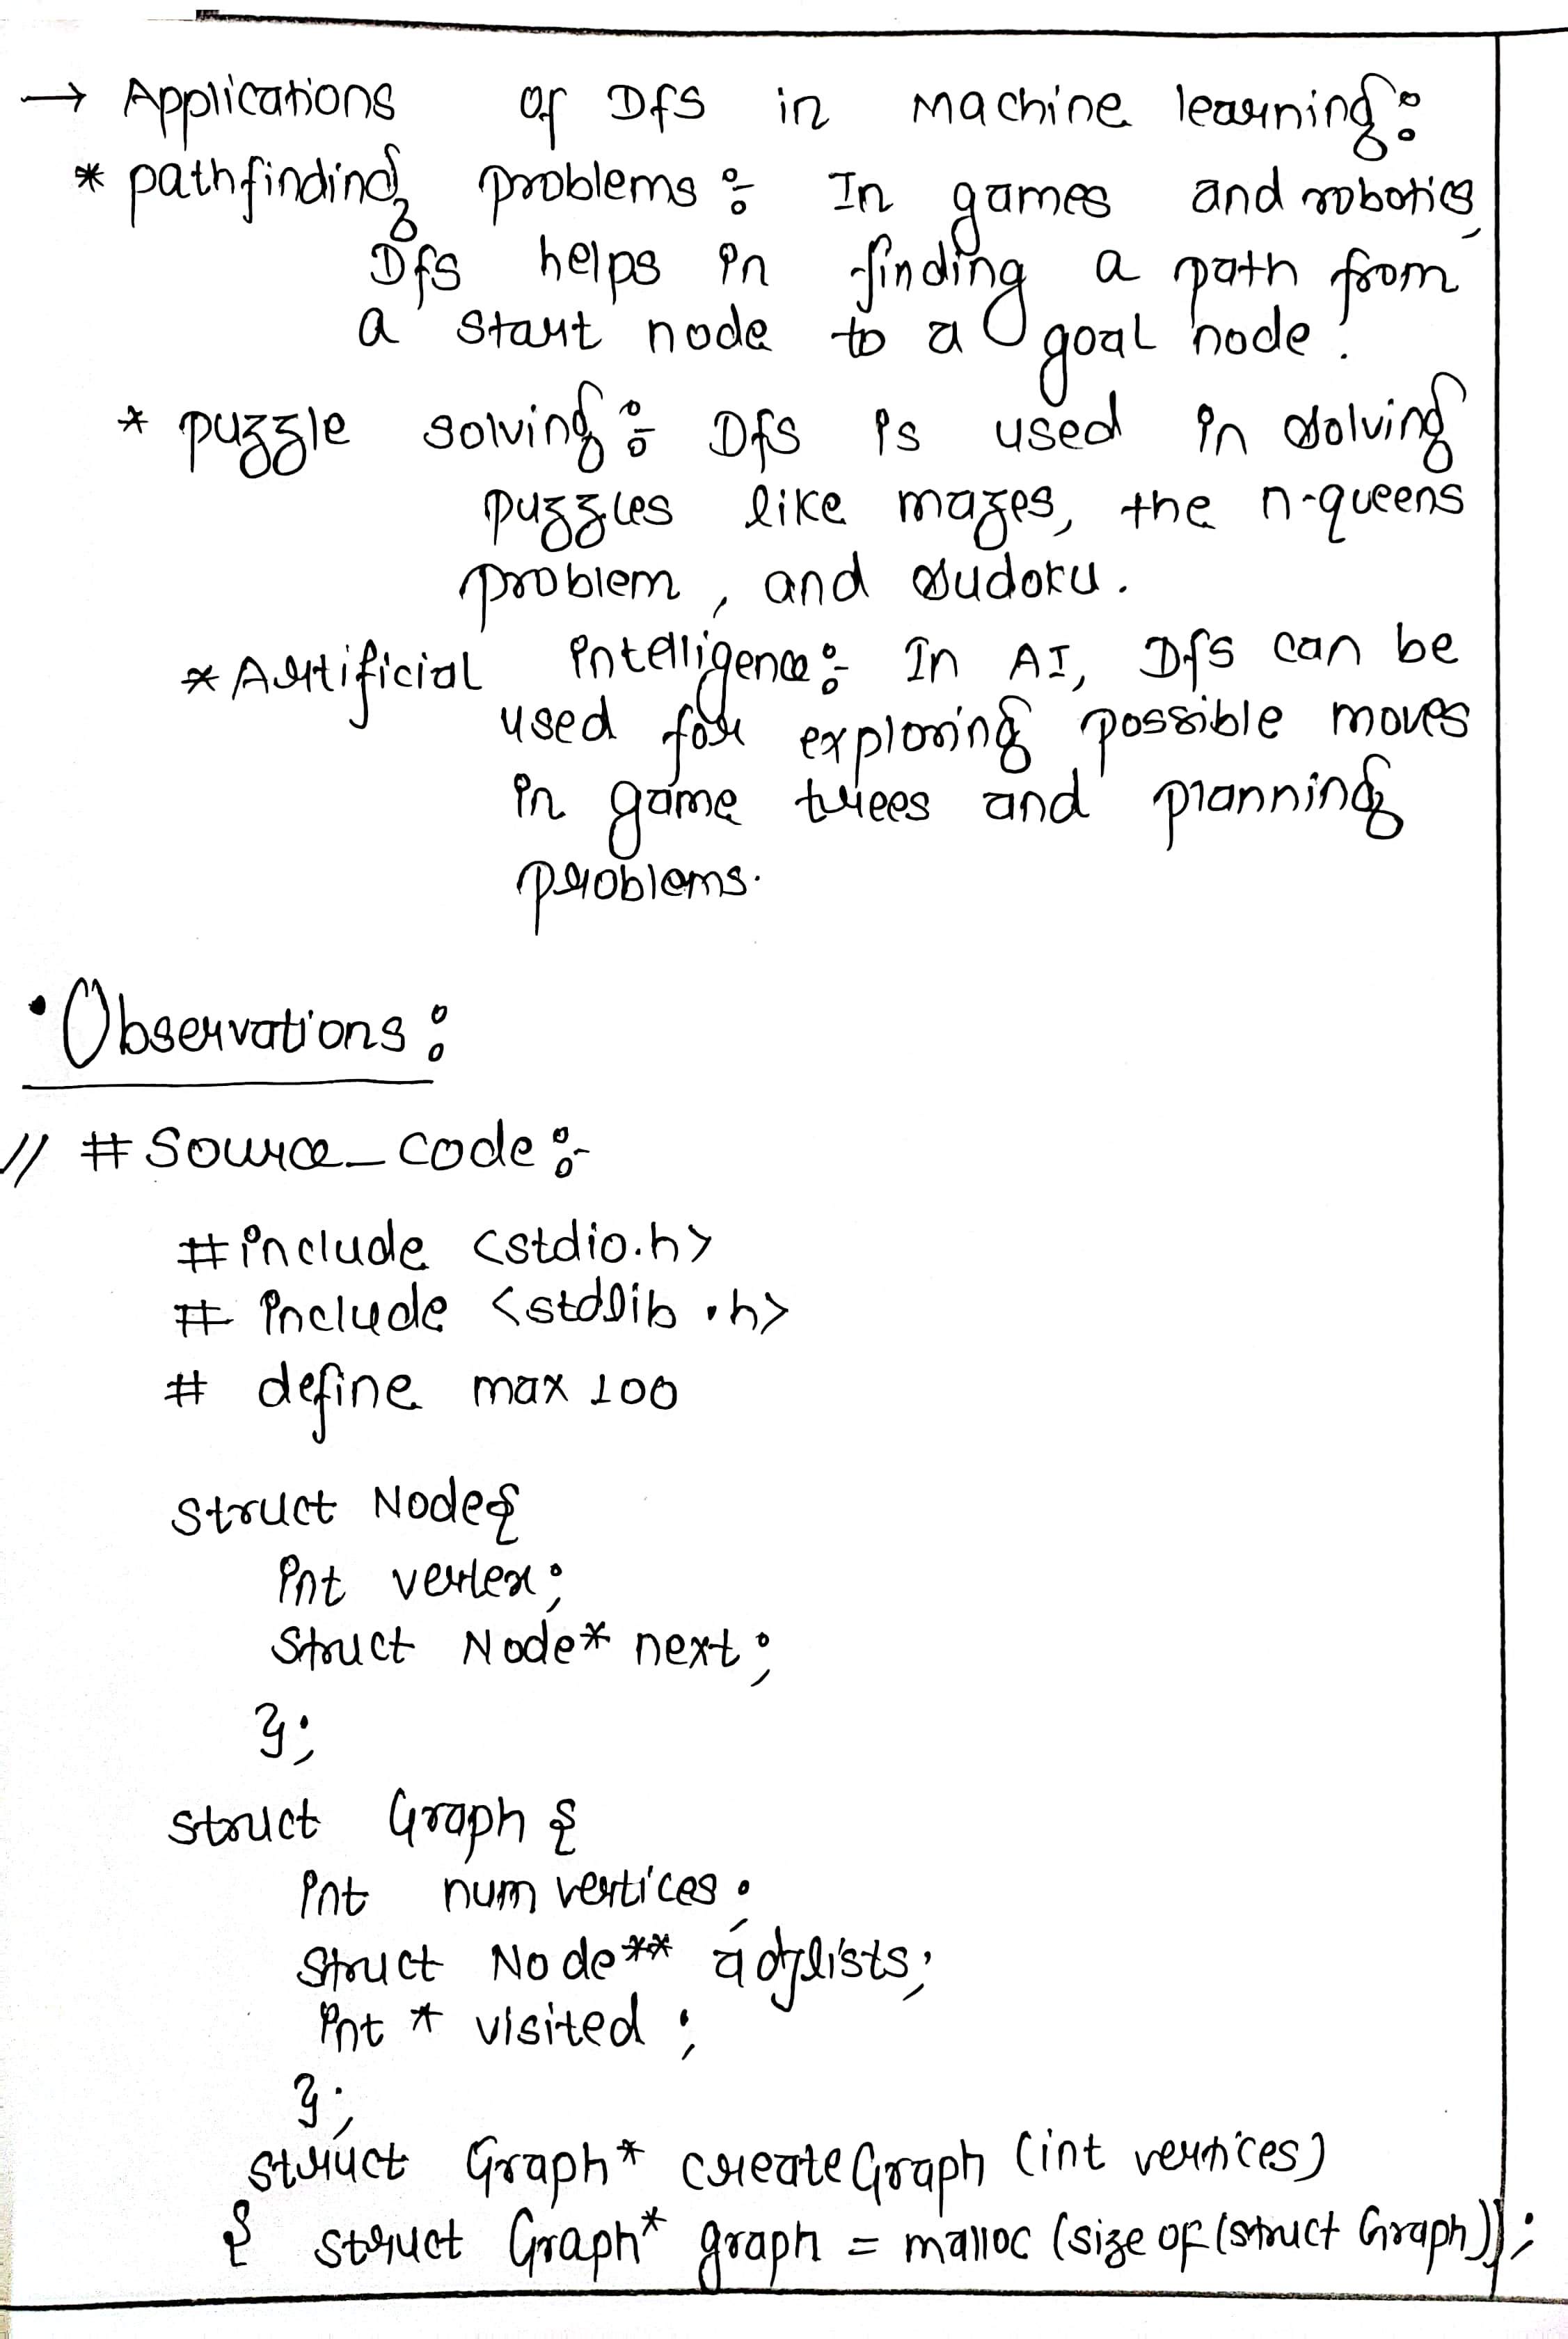 → Applications of Dfs in Machine learning:
* pathfinding problems :- In games and robotics,
Dfs helps in finding a path from
a start node to a goal node.
* puzzle solving :- Dfs is used in solving
puzzles like mazes, the n-queens
problem, and sudoku.
* Artificial intelligence :- In AI, Dfs can be
used for exploring possible moves
in game trees and planning
problems.
• Observations :
// # Source_code :-
#include <stdio.h>
# include <stdlib.h>
# define max 100
struct Node{
int vertex;
struct Node* next;
};
struct Graph {
int num vertices;
struct Node** adjlists;
int * visited ;
};
struct Graph* createGraph (int vertices)
{ struct Graph* graph = malloc (size of (struct Graph));